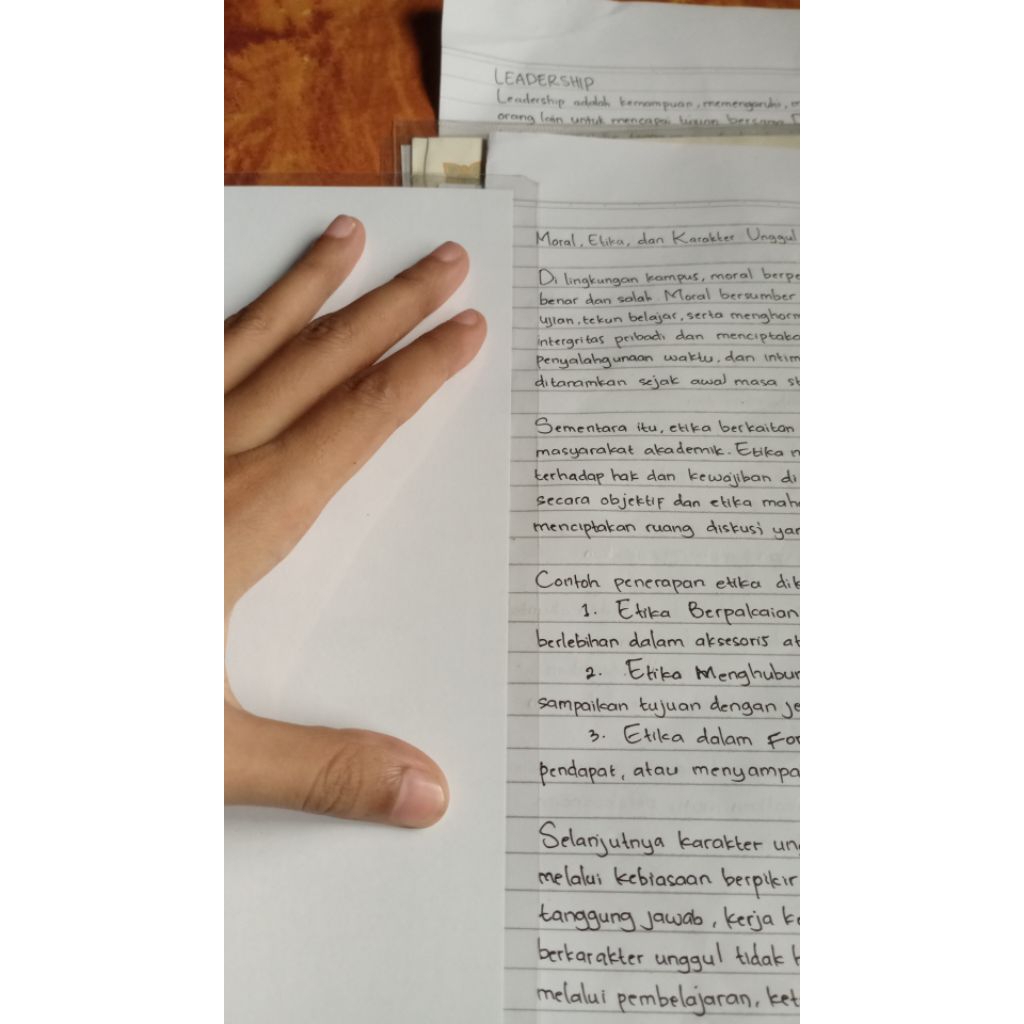 LEADERSHIP
Leadership adalah kemampuan, memengaruhi,
orang lain untuk mencapai tujuan bersama
Moral, Etika, dan Karakter Unggul
Di lingkungan kampus, moral berpe
benar dan salah. Moral bersumber
ujian, tekun belajar, serta menghorm
intergritas pribadi dan menciptaka
penyalahgunaan waktu, dan intim
ditanamkan sejak awal masa st
Sementara itu, etika berkaitan
masyarakat akademik. Etika m
terhadap hak dan kewajiban di
secara objektif dan etika maha
menciptakan ruang diskusi yan
Contoh penerapan etika dik
1. Etika Berpakaian
berlebihan dalam aksesoris at
2. Etika Menghubun
sampaikan tujuan dengan je
3. Etika dalam For
pendapat, atau menyampa
Selanjutnya karakter un
melalui kebiasaan berpikir
tanggung jawab, kerja ke
berkarakter unggul tidak h
melalui pembelajaran, ket